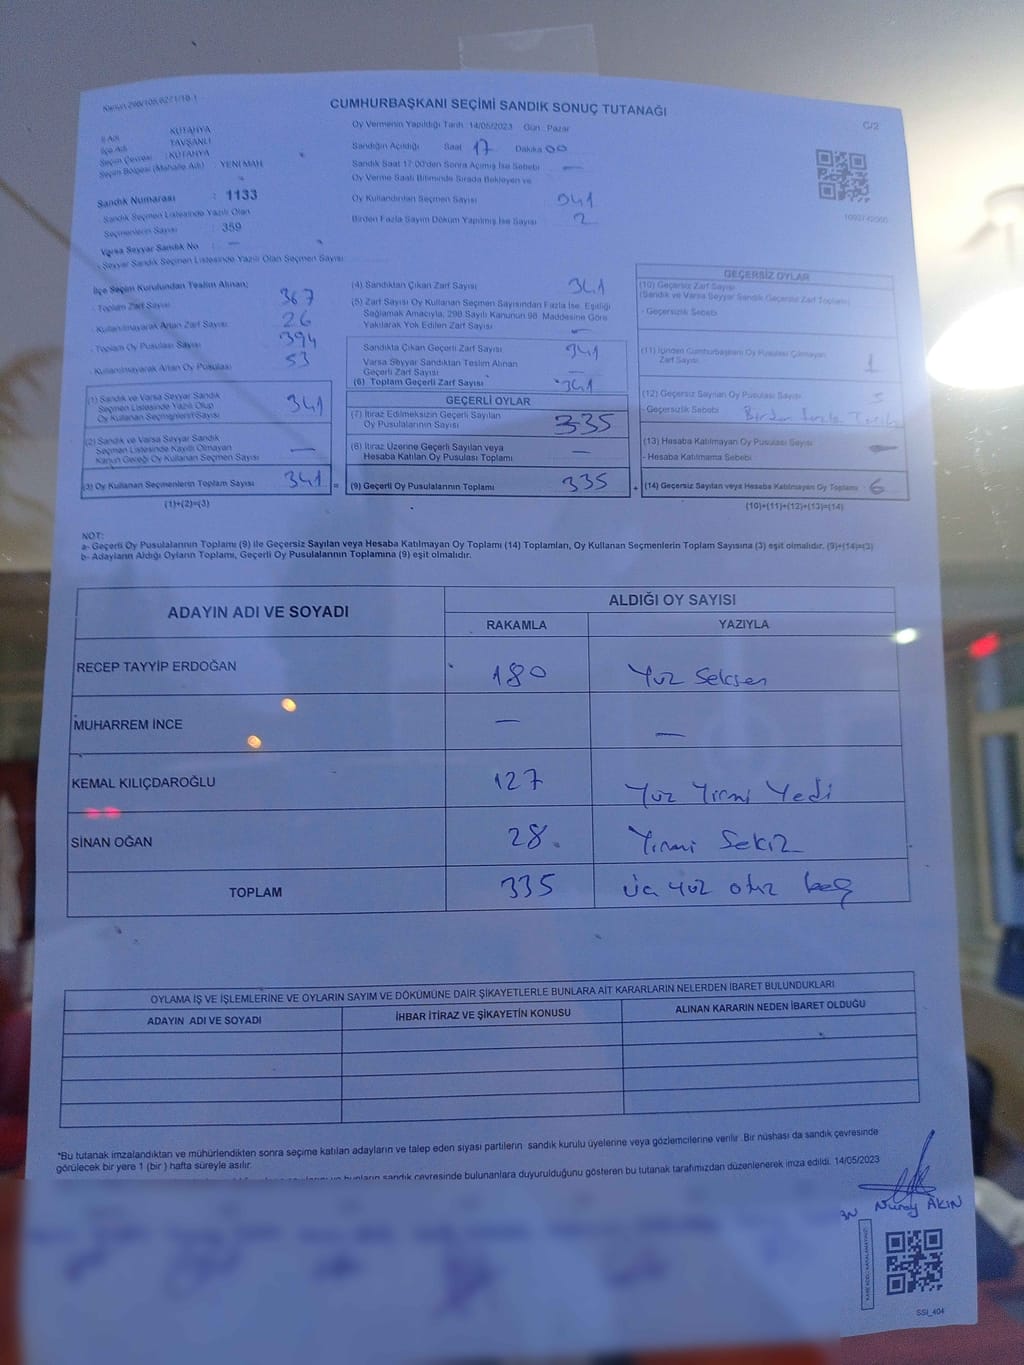 CUMHURBAŞKANI SEÇİMİ SANDIK SONUÇ TUTANAĞI
C/2
İl Adı KÜTAHYA
İlçe Adı TAVŞANLI
Seçim Çevresi : KÜTAHYA
Seçim Bölgesi (Mahalle Adı) : YENİ MAH
Sandık Numarası : 1133
- Sandık Seçmen Listesinde Yazılı Olan
Seçmenlerin Sayısı : 359
Varsa Seyyar Sandık No : —
- Seyyar Sandık Seçmen Listesinde Yazılı Olan Seçmen Sayısı:
Oy Vermenin Yapıldığı Tarih: 14/05/2023 Gün: Pazar
Sandığın Açıldığı Saat 17 Dakika 00
Sandık Saat 17:00'den Sonra Açılmış İse Sebebi —
Oy Verme Saati Bitiminde Sırada Bekleyen ve
Oy Kullandırılan Seçmen Sayısı 341
Birden Fazla Sayım Döküm Yapılmış İse Sayısı 2
İlçe Seçim Kurulundan Teslim Alınan;
- Toplam Zarf Sayısı 367
- Kullanılmayarak Artan Zarf Sayısı 26
- Toplam Oy Pusulası Sayısı 394
- Kullanılmayarak Artan Oy Pusulası 53
(1) Sandık ve Varsa Seyyar Sandık
Seçmen Listesinde Yazılı Olup
Oy Kullanan Seçmenlerin Sayısı 341
(2) Sandık ve Varsa Seyyar Sandık
Seçmen Listesinde Kayıtlı Olmayan
Kanun Gereği Oy Kullanan Seçmen Sayısı —
(3) Oy Kullanan Seçmenlerin Toplam Sayısı 341 =
(1)+(2)=(3)
(4) Sandıktan Çıkan Zarf Sayısı 341
(5) Zarf Sayısı Oy Kullanan Seçmen Sayısından Fazla İse, Eşitliği
Sağlamak Amacıyla, 298 Sayılı Kanunun 98. Maddesine Göre
Yakılarak Yok Edilen Zarf Sayısı —
Sandıkta Çıkan Geçerli Zarf Sayısı 341
Varsa Seyyar Sandıktan Teslim Alınan
Geçerli Zarf Sayısı —
(6) Toplam Geçerli Zarf Sayısı 341
GEÇERLİ OYLAR
(7) İtiraz Edilmeksizin Geçerli Sayılan
Oy Pusulasının Sayısı 335
(8) İtiraz Üzerine Geçerli Sayılan veya
Hesaba Katılan Oy Pusulası Toplamı —
(9) Geçerli Oy Pusulalarının Toplamı 335 +
GEÇERSİZ OYLAR
(10) Geçersiz Zarf Sayısı
(Sandık ve Varsa Seyyar Sandık Geçersiz Zarf Toplamı)
- Geçersizlik Sebebi
(11) İçinden Cumhurbaşkanı Oy Pusulası Çıkmayan
Zarf Sayısı 1
(12) Geçersiz Sayılan Oy Pusulası Sayısı 5
- Geçersizlik Sebebi Birden fazla
(13) Hesaba Katılmayan Oy Pusulası Sayısı —
- Hesaba Katılmama Sebebi
(14) Geçersiz Sayılan veya Hesaba Katılmayan Oy Toplamı 6
(10)+(11)+(12)+(13)=(14)
NOT:
a- Geçerli Oy Pusulalarının Toplamı (9) ile Geçersiz Sayılan veya Hesaba Katılmayan Oy Toplamı (14) Toplamları, Oy Kullanan Seçmenlerin Toplam Sayısına (3) eşit olmalıdır. (9)+(14)=(3)
b- Adayların Aldığı Oyların Toplamı, Geçerli Oy Pusulalarının Toplamına (9) eşit olmalıdır.
ADAYIN ADI VE SOYADI
ALDIĞI OY SAYISI
RAKAMLA YAZIYLA
RECEP TAYYİP ERDOĞAN 180 Yüz Seksen
MUHARREM İNCE — —
KEMAL KILIÇDAROĞLU 127 Yüz Yirmi Yedi
SİNAN OĞAN 28 Yirmi Sekiz
TOPLAM 335 Üç yüz otuz beş
OYLAMA İŞ VE İŞLEMLERİNE VE OYLARIN SAYIM VE DÖKÜMÜNE DAİR ŞİKAYETLERLE BUNLARA AİT KARARLARIN NELERDEN İBARET BULUNDUKLARI
ADAYIN ADI VE SOYADI İHBAR İTİRAZ VE ŞİKAYETİN KONUSU ALINAN KARARIN NEDEN İBARET OLDUĞU
*Bu tutanak imzalandıktan ve mühürlendikten sonra seçime katılan adayların ve talep eden siyasi partilerin sandık kurulu üyelerine veya gözlemcilerine verilir. Bir nüshası da sandık çevresinde
görülecek bir yere 1 (bir) hafta süreyle asılır.
sandık çevresinde bulunanlara duyurulduğunu gösteren bu tutanak tarafımızdan düzenlenerek imza edildi. 14/05/2023
Nuray AKIN
SSI_404